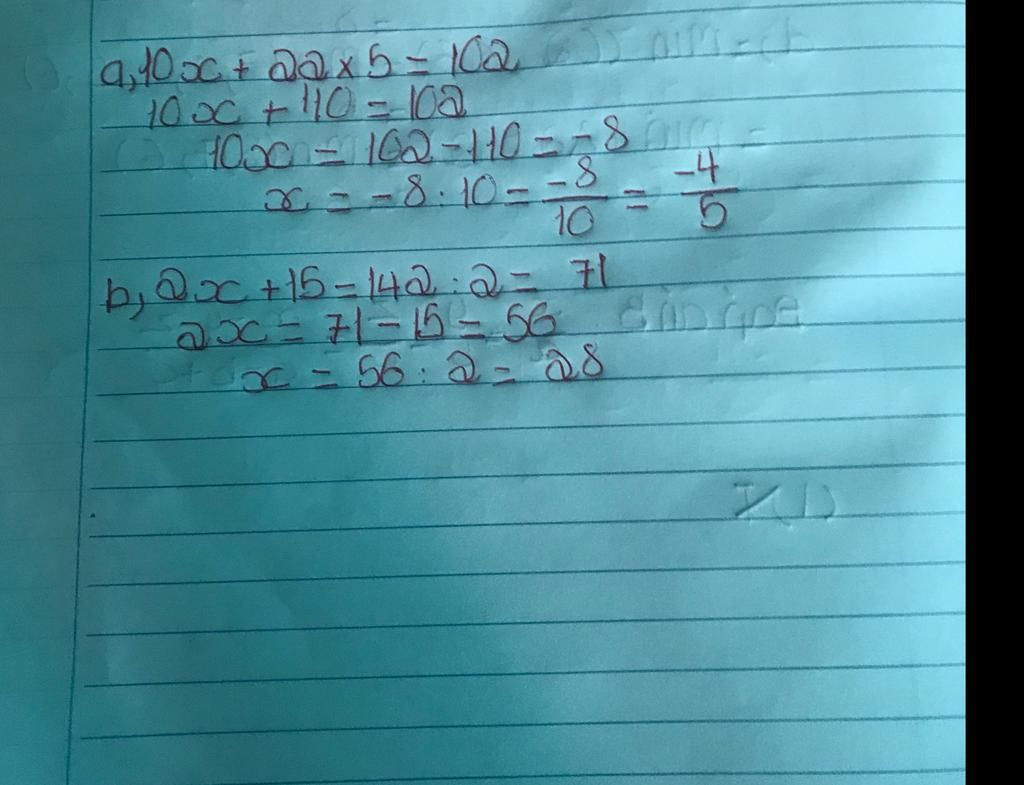 a, 10x + 22 × 5 = 102
10x + 110 = 102
10x = 102 - 110 = -8
x = -8 : 10 = -8/10 = -4/5
b, 2x + 15 = 142 : 2 = 71
2x = 71 - 15 = 56
x = 56 : 2 = 28